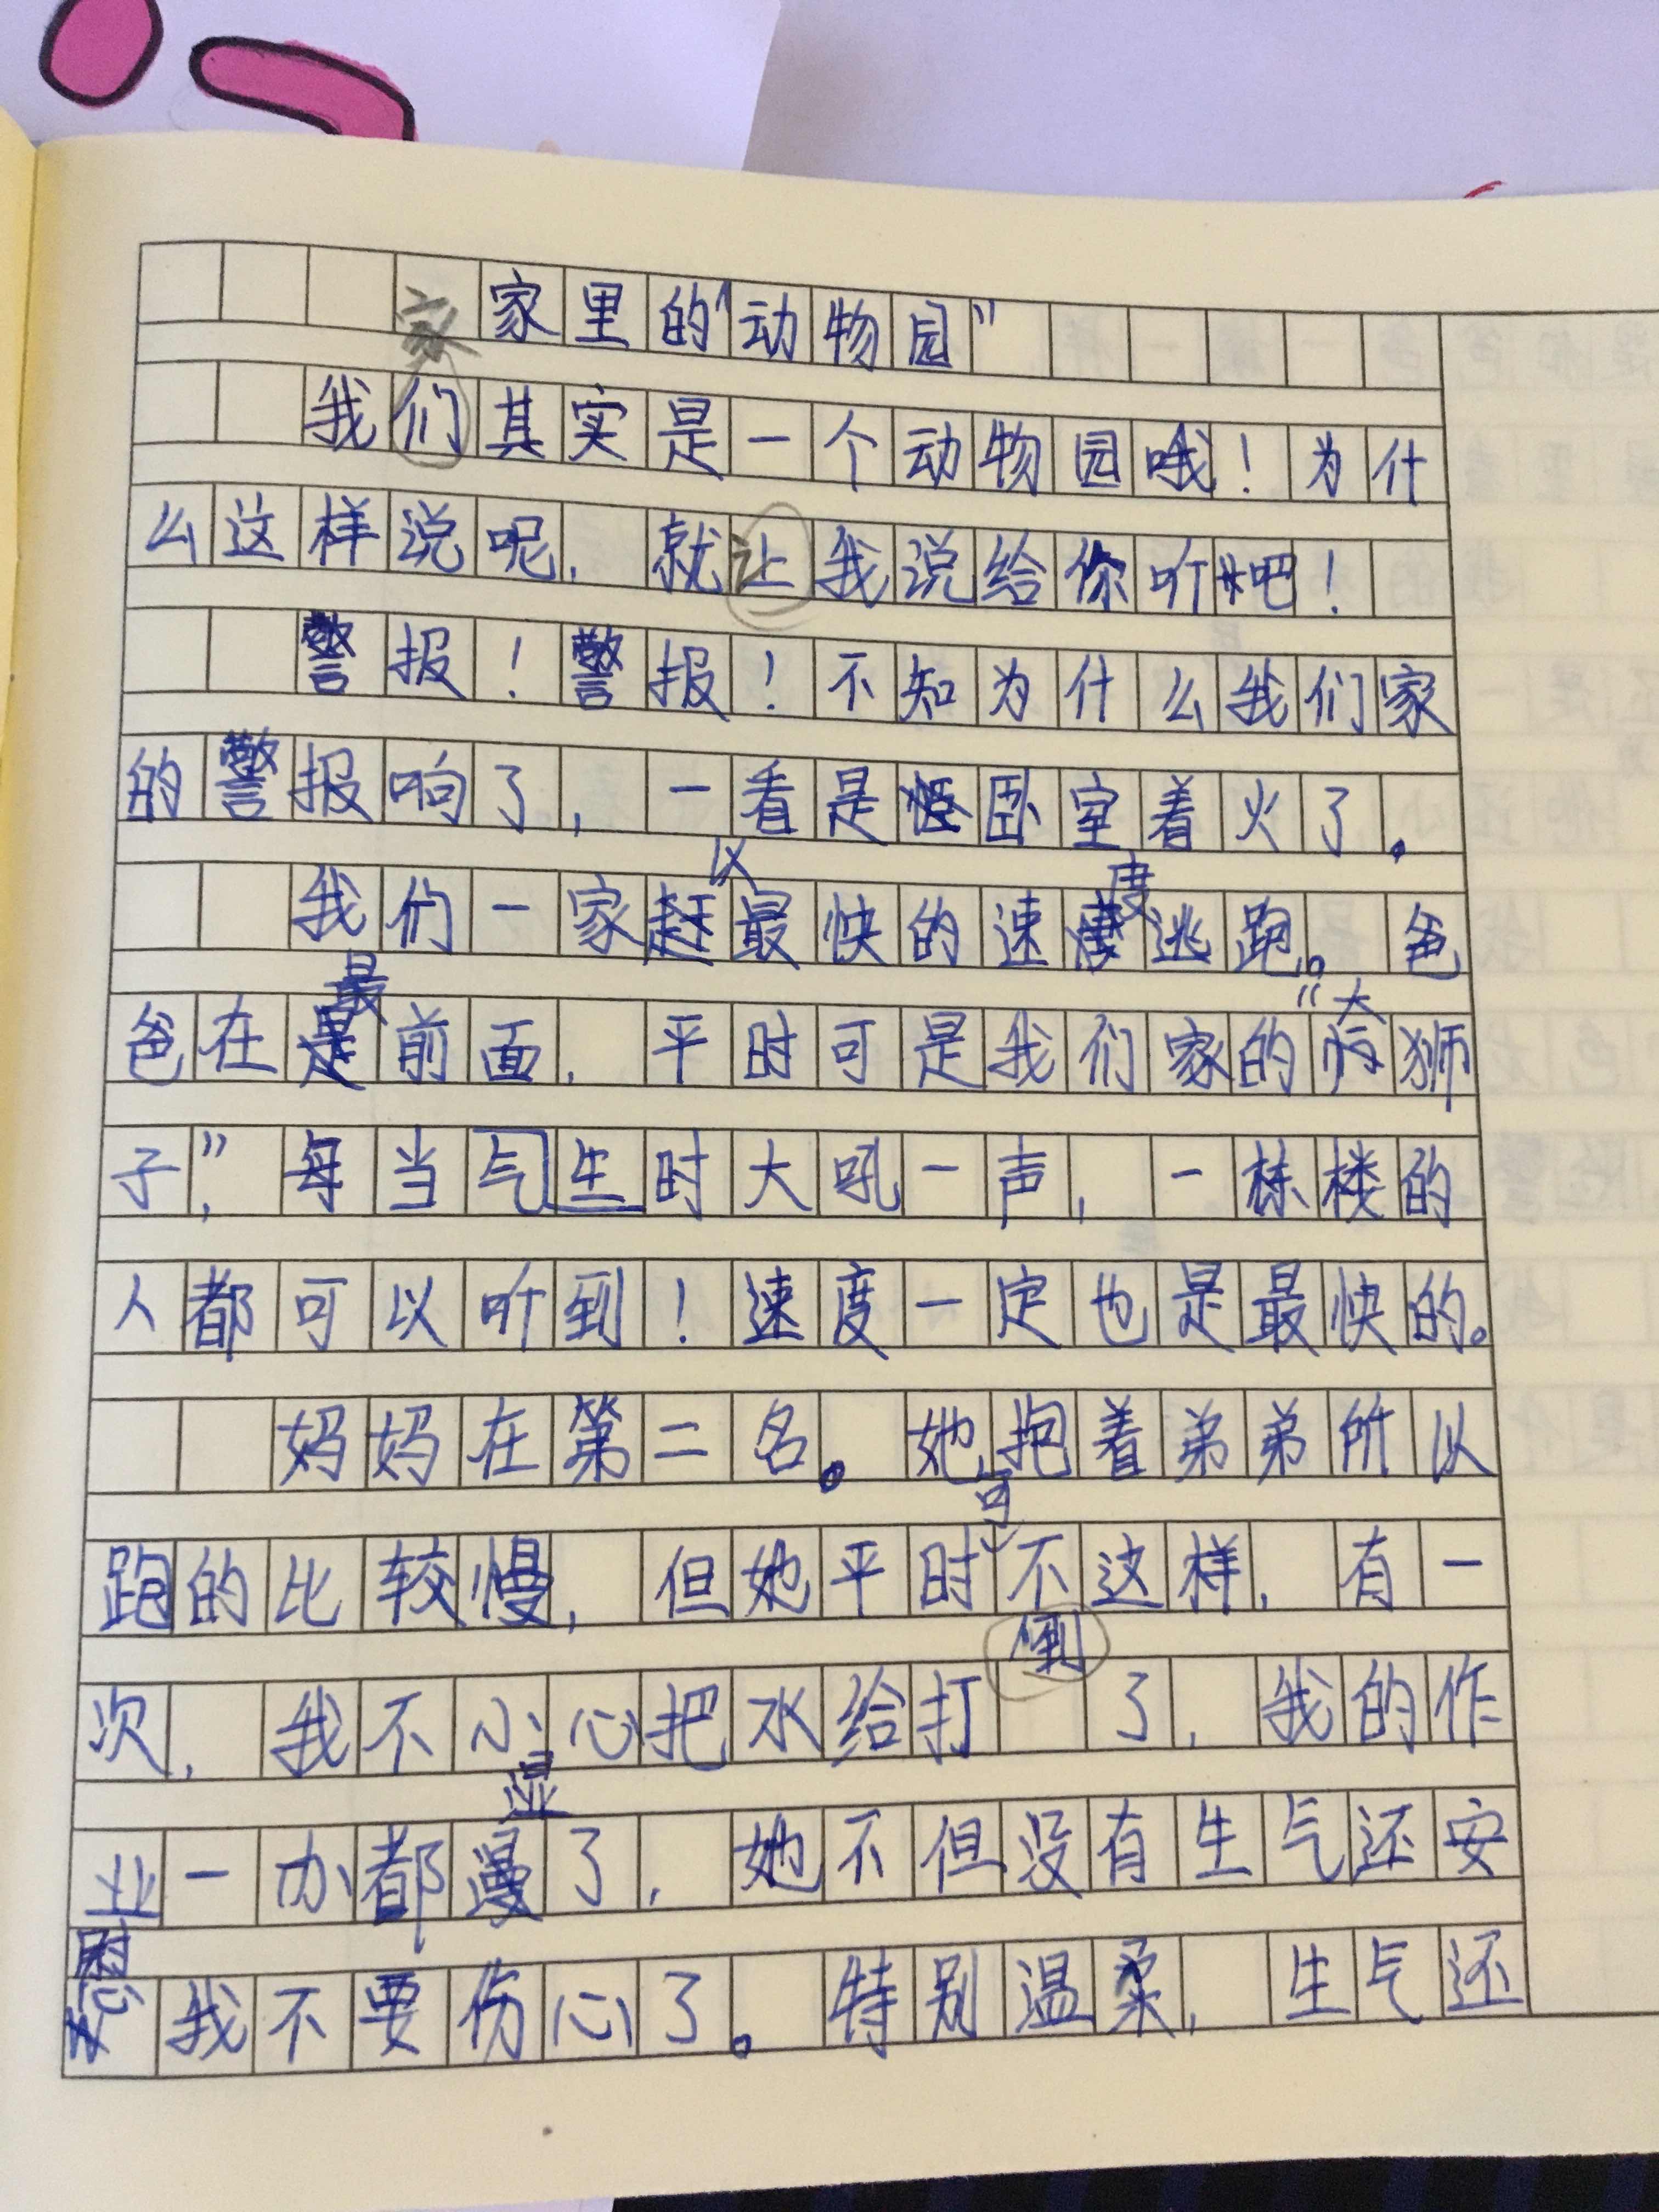 家里的“动物园”
我们其实是一个动物园哦！为什
么这样说呢，就让我说给你听吧！
警报！警报！不知为什么我们家
的警报响了，一看是卧室着火了。
我们一家以最快的速度逃跑。爸
爸在最前面，平时可是我们家的“大狮
子”，每当气生时大吼一声，一栋楼的
人都可以听到！速度一定也是最快的。
妈妈在第二名。她抱着弟弟所以
跑的比较慢，但她平时可不这样，有一
次，我不小心把水给打倒了，我的作
业一办都湿了，她不但没有生气还安
慰我不要伤心了。特别温柔，生气还